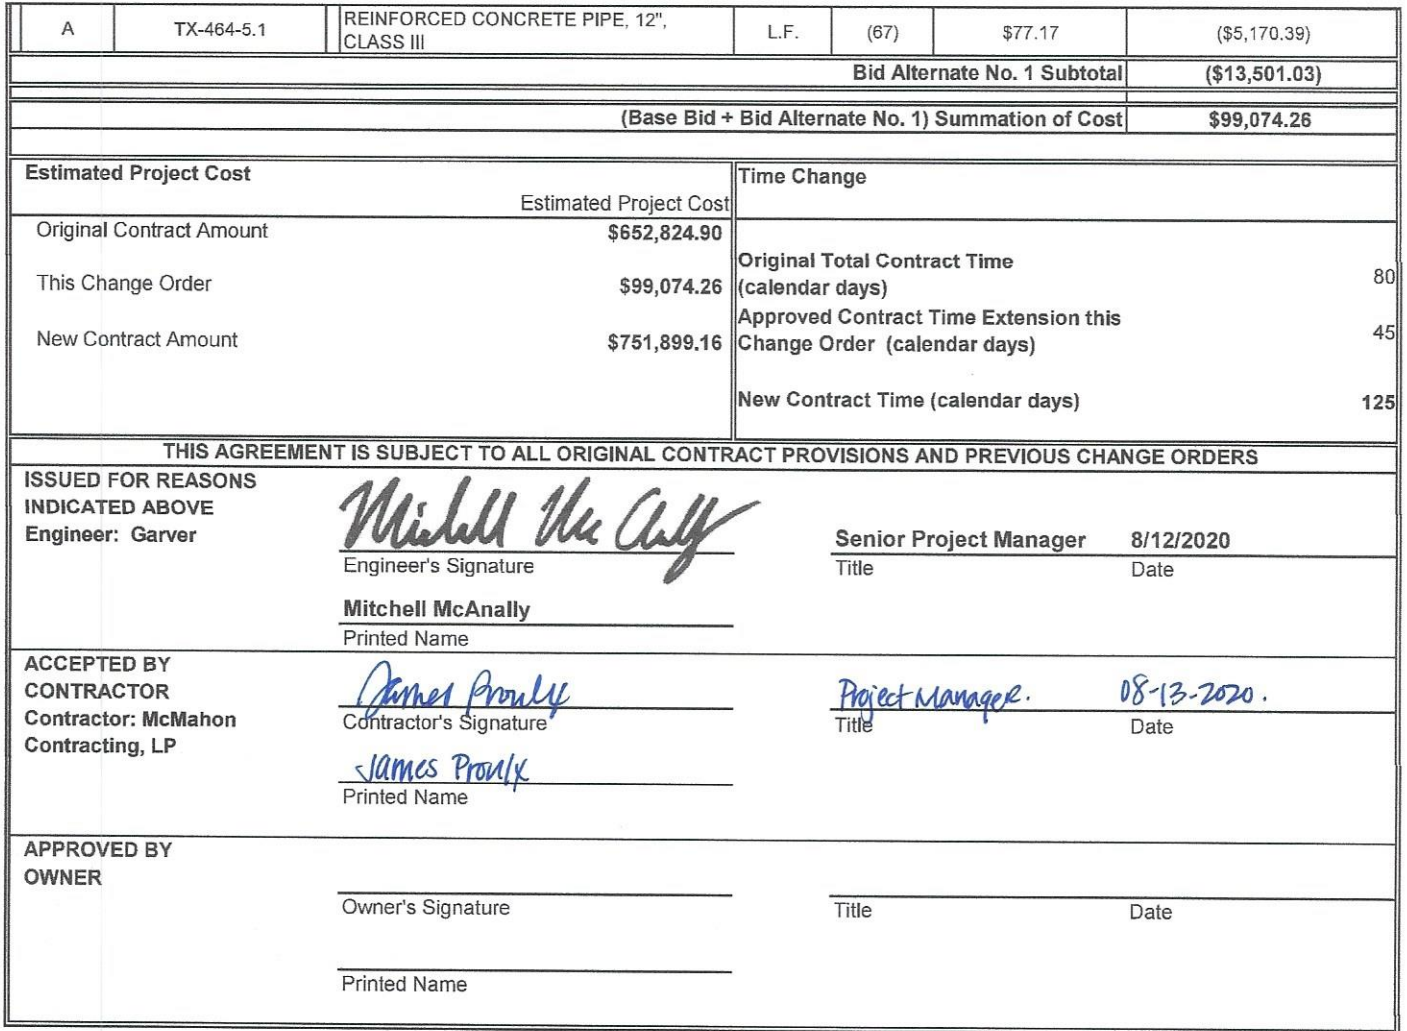 A TX-464-5.1 REINFORCED CONCRETE PIPE, 12", L.F. (67) $77.17 ($5,170.39)
CLASS III
Bid Alternate No. 1 Subtotal ($13,501.03)
(Base Bid + Bid Alternate No. 1) Summation of Cost $99,074.26
Estimated Project Cost
Estimated Project Cost
Original Contract Amount $652,824.90
This Change Order $99,074.26
New Contract Amount $751,899.16
Time Change
Original Total Contract Time
(calendar days) 80
Approved Contract Time Extension this
Change Order (calendar days) 45
New Contract Time (calendar days) 125
THIS AGREEMENT IS SUBJECT TO ALL ORIGINAL CONTRACT PROVISIONS AND PREVIOUS CHANGE ORDERS
ISSUED FOR REASONS
INDICATED ABOVE
Engineer: Garver
Mitchell McAnally
Engineer's Signature
Senior Project Manager 8/12/2020
Title Date
Mitchell McAnally
Printed Name
ACCEPTED BY
CONTRACTOR
Contractor: McMahon
Contracting, LP
James Proulx
Contractor's Signature
Project Manager. 08-13-2020.
Title Date
James Proulx
Printed Name
APPROVED BY
OWNER
Owner's Signature Title Date
Printed Name